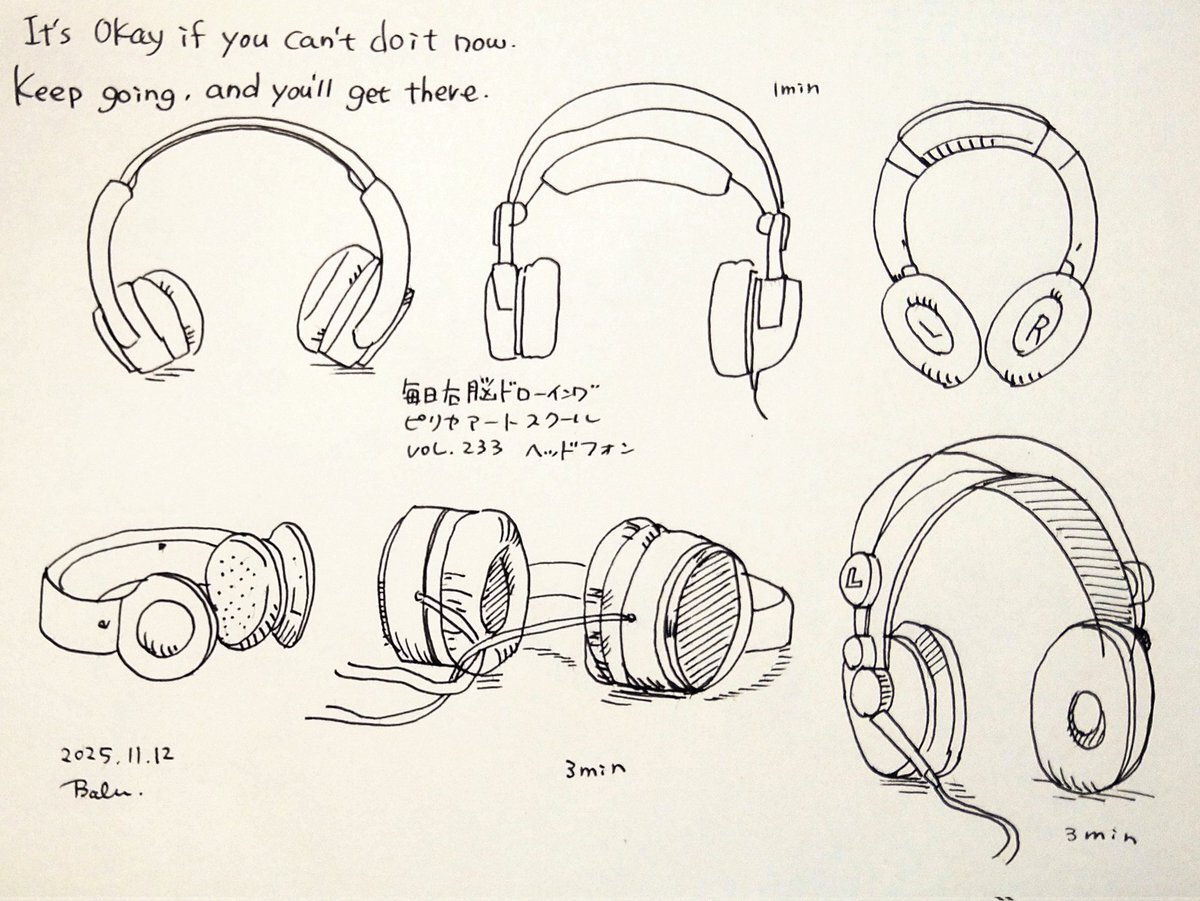 It's Okay if you can't do it now.
Keep going, and you'll get there.
1min
L
R
毎日右脳ドローイング
ピリカアートスクール
VOL.233 ヘッドフォン
L
2025.11.12
Balu.
3min
3min